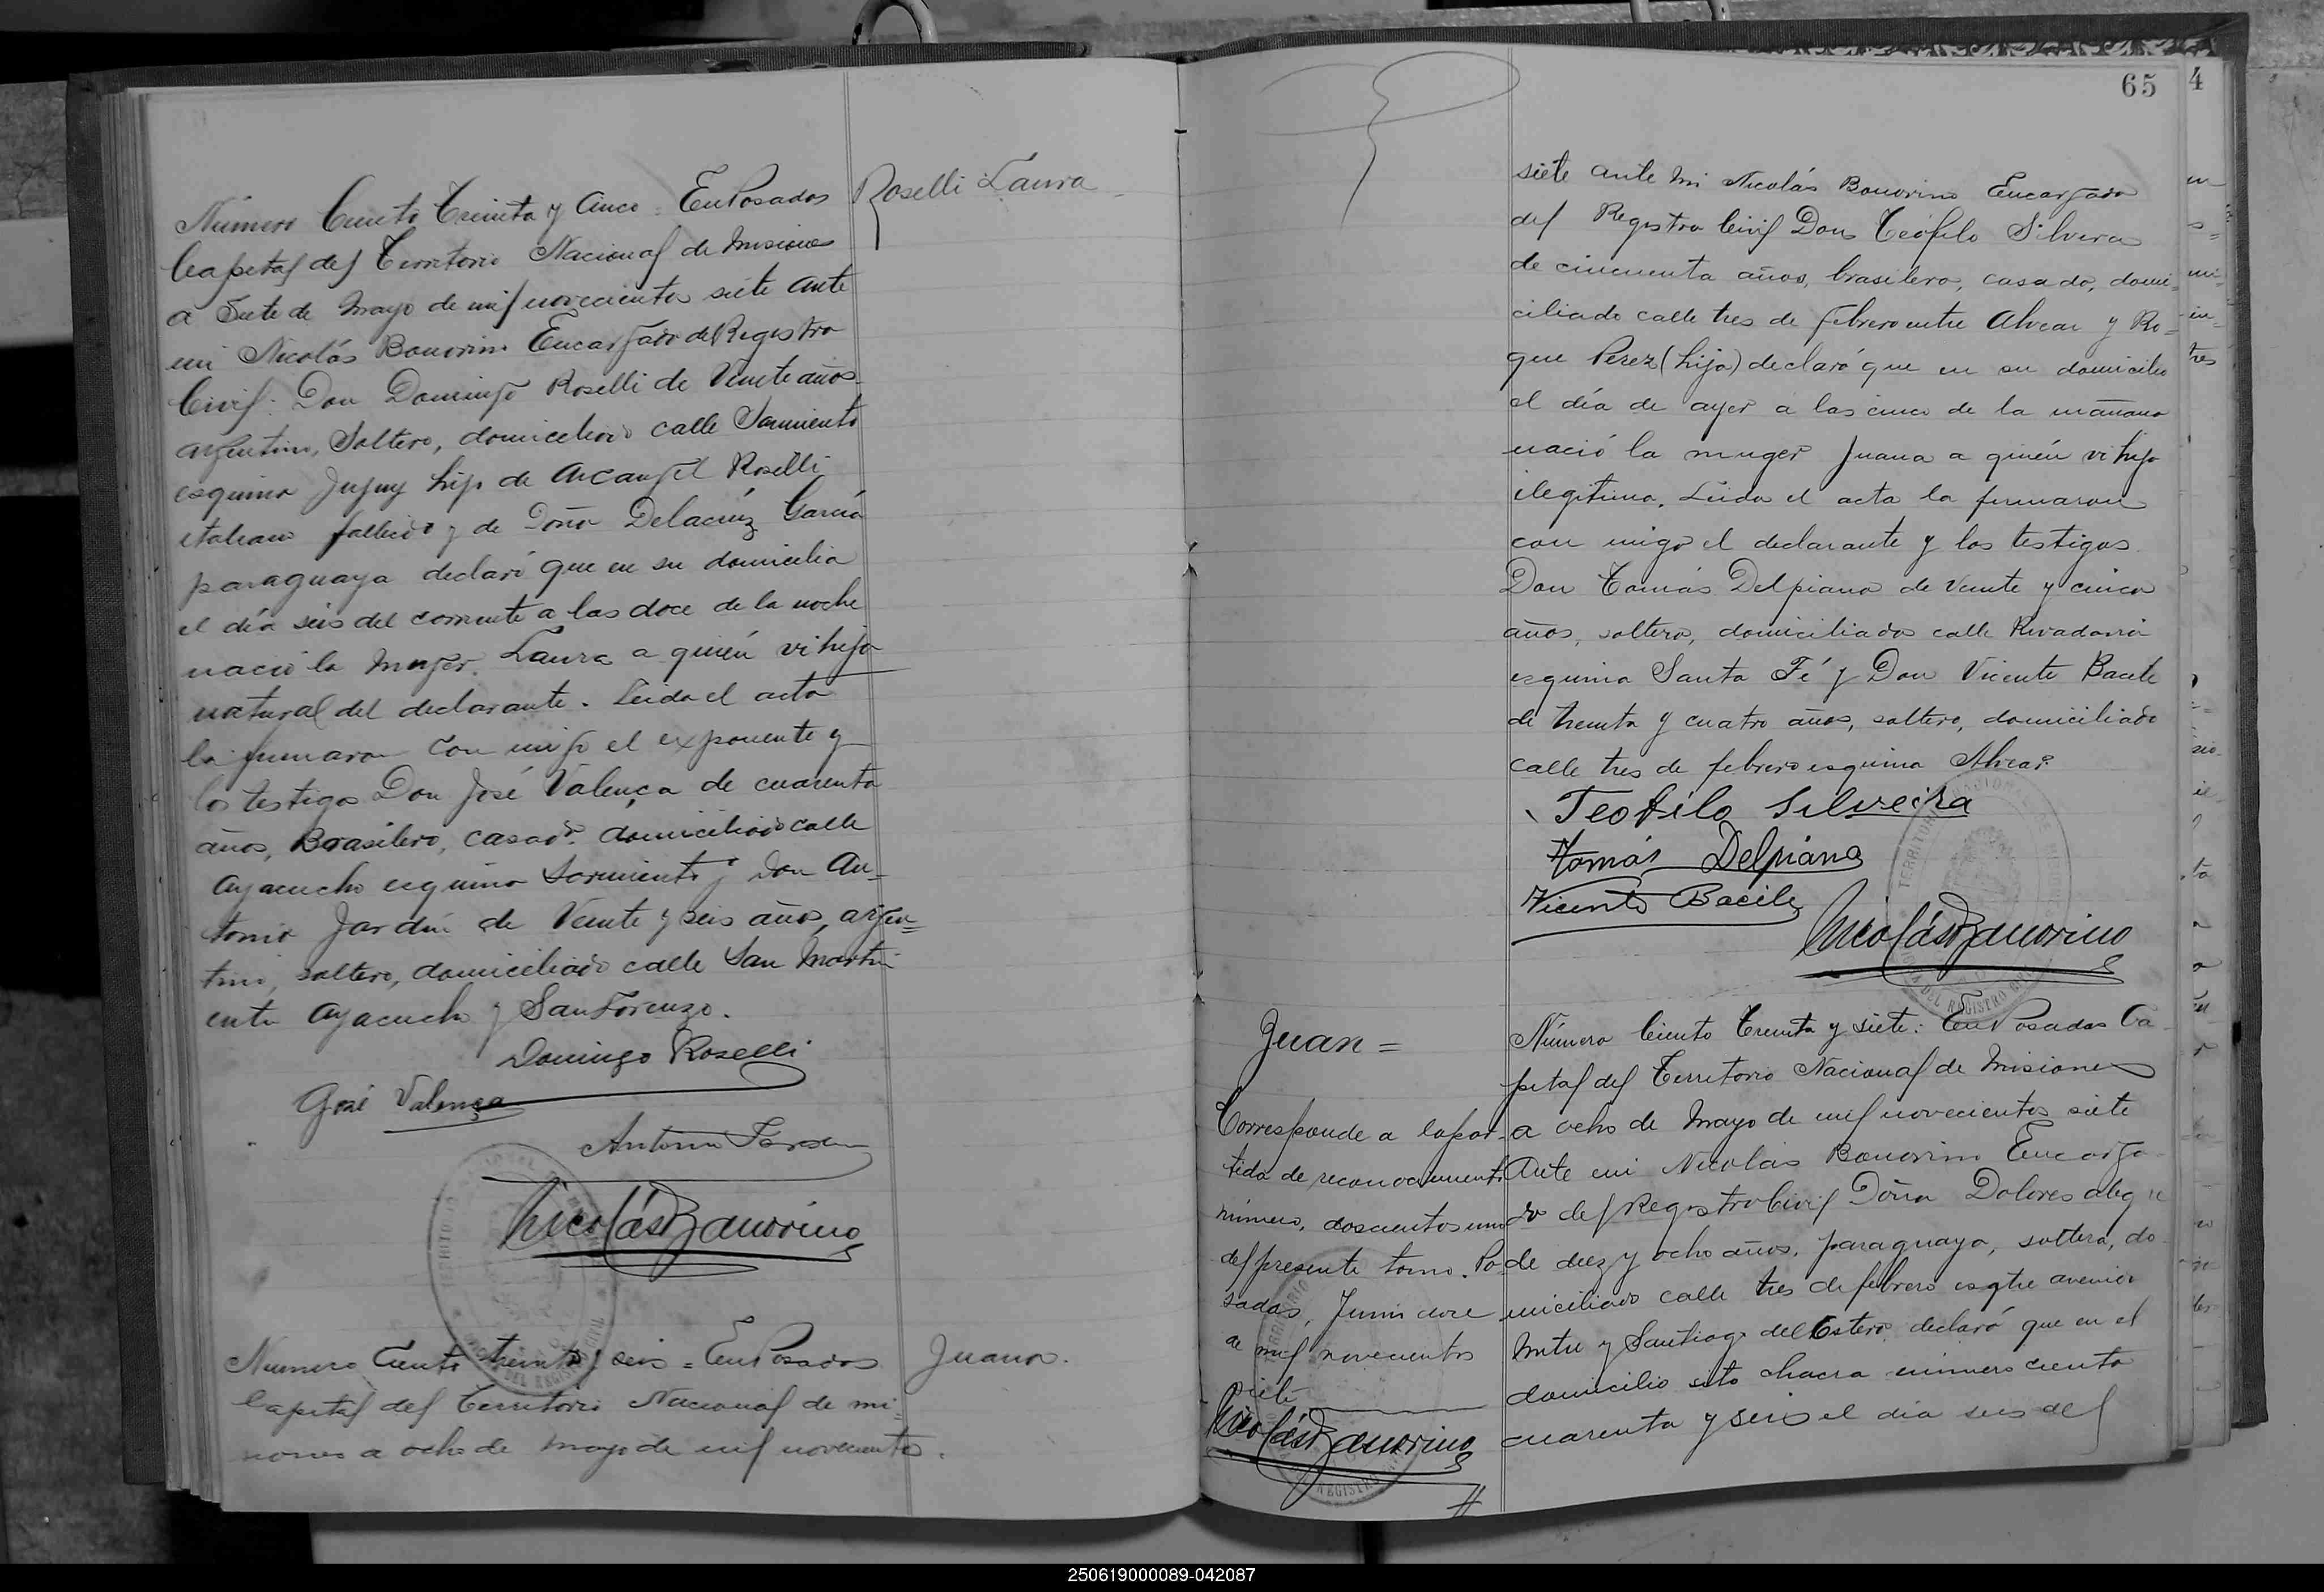 Roselli Laura
Número Ciento Treinta y Cinco = En Posadas
Capital del Territorio Nacional de Misiones
a Siete de Mayo de mil novecientos siete ante
mi Nicolás Bonorino Encargado del Registro
Civil: Don Domingo Roselli de Veinte años
argentino, Soltero, domiciliado calle Sarmiento
esquina Jujuy hijo de Arcangel Roselli
italiano fallecido y de Doña Delacruz García
paraguaya declaró que en su domicilio
el día seis del corriente a las doce de la noche
nació la Mujer. Laura a quién vi hija
natural del declarante. Leida el acta
la firmaron con migo el exponente y
los testigos Don José Valença de cuarenta
años, Brasilero, casado. domiciliado calle
Ayacucho esquina Sarmiento y Don An-
tonio Jardín de Veinte y seis años, argen=
tino, soltero, domiciliado calle San Martín
entre Ayacucho y San Lorenzo.
Domingo Roselli
José Valença
Antonio
Nicolás Bonorino
Juana.
Numero Ciento treinta y seis = En Posadas
Capital del Territorio Nacional de mi=
siones a ocho de mayo de mil novecientos
65
4
siete ante mi Nicolás Bonorino Encargado
del Registro Civil Don Teófilo Silvera
de cincuenta años, brasilero, casado, domi=
ciliado calle tres de febrero entre Alvear y Ro=
que Perez (hijo) declaró que en su domicilio
el día de ayer a las cinco de la mañana
nació la muger Juana a quién vi hija
ilegitima. Leida el acta la firmaron
con migo el declarante y los testigos
Don Tomás Delpiano de veinte y cinco
años, soltero, domiciliado calle Rivadavia
esquina Santa Fé y Don Vicente Bacile
de treinta y cuatro años, soltero, domiciliado
calle tres de febrero esquina Alvear.
Teofilo Silveira
Tomás Delpiano
Vicente Bacile
Nicolás Bonorino
Juan =
Corresponde a la par-
tida de reconocimiento
número, doscientos uno
del presente tomo. Po-
sadas, Junio doce
de mil novecientos
siete
Nicolás Bonorino
Número Ciento Treinta y siete: En Posadas Ca-
pital del Territorio Nacional de Misiones
a ocho de Mayo de mil novecientos siete
Ante mi Nicolás Bonorino Encarga-
do del Registro Civil Doña Dolores
de diez y ocho años, paraguaya, soltera, do-
miciliado calle tres de febrero avenida
Mitre y Santiago del Estero, declaró que en el
domicilio sito chacra número ciento
cuarenta y seis el día seis del
250619000089-042087